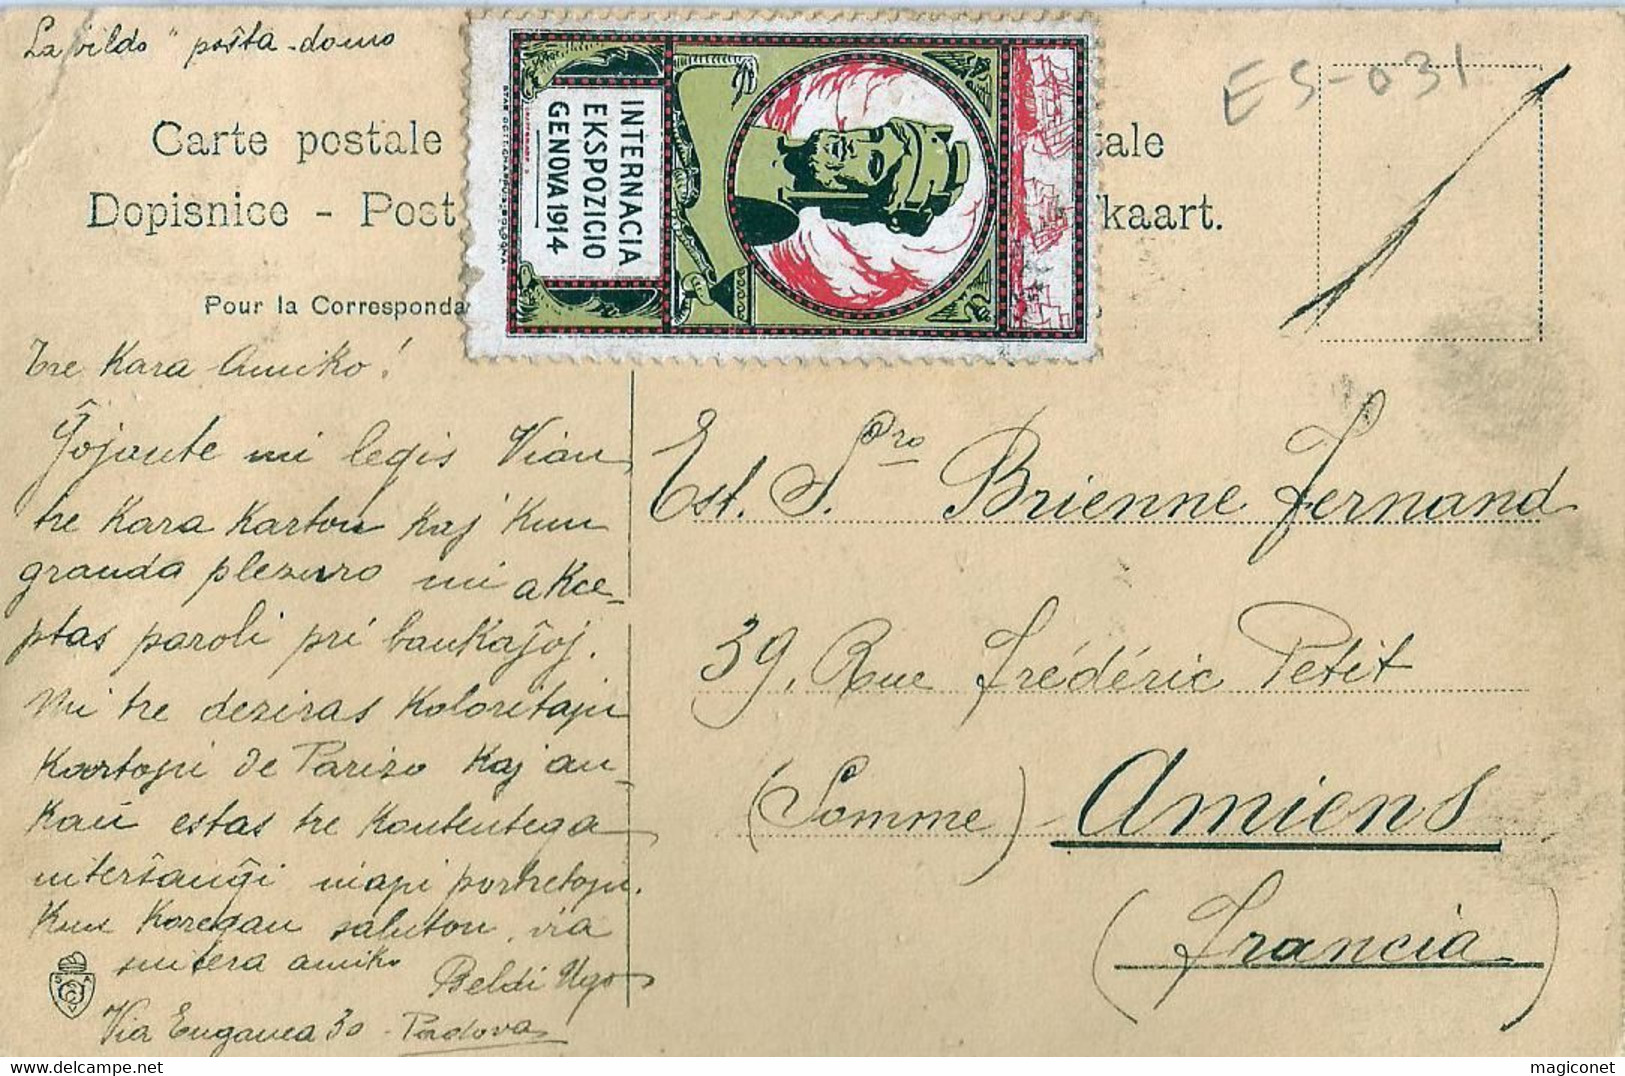 La „vildo" poŝta-domo
ES-031
Carte postale
tale
Dopisnice - Post
kaart.
Pour la Corresponda
INTERNACIA
EKSPOZICIO
GENOVA 1914
Tre Kara Amiko!
Ĝojante mi legis Vian
tre Kara Karton Kaj Kun
granda plezuro mi akce-
ptas paroli pri bankaĵoj.
Mi tre deziras Koloritajn
Kartojn de Parizo Kaj an-
kaŭ estas tre Kontentega
interŝanĝi niajn portretojn.
Kun Koregan saluton, via
sincera amiko
Beldi Ugo
Via Euganea 30 - Padova
Est. S.ro Brienne Fernand
39, Rue Frédéric Petit
(Somme) Amiens
(Francia)
magiconet